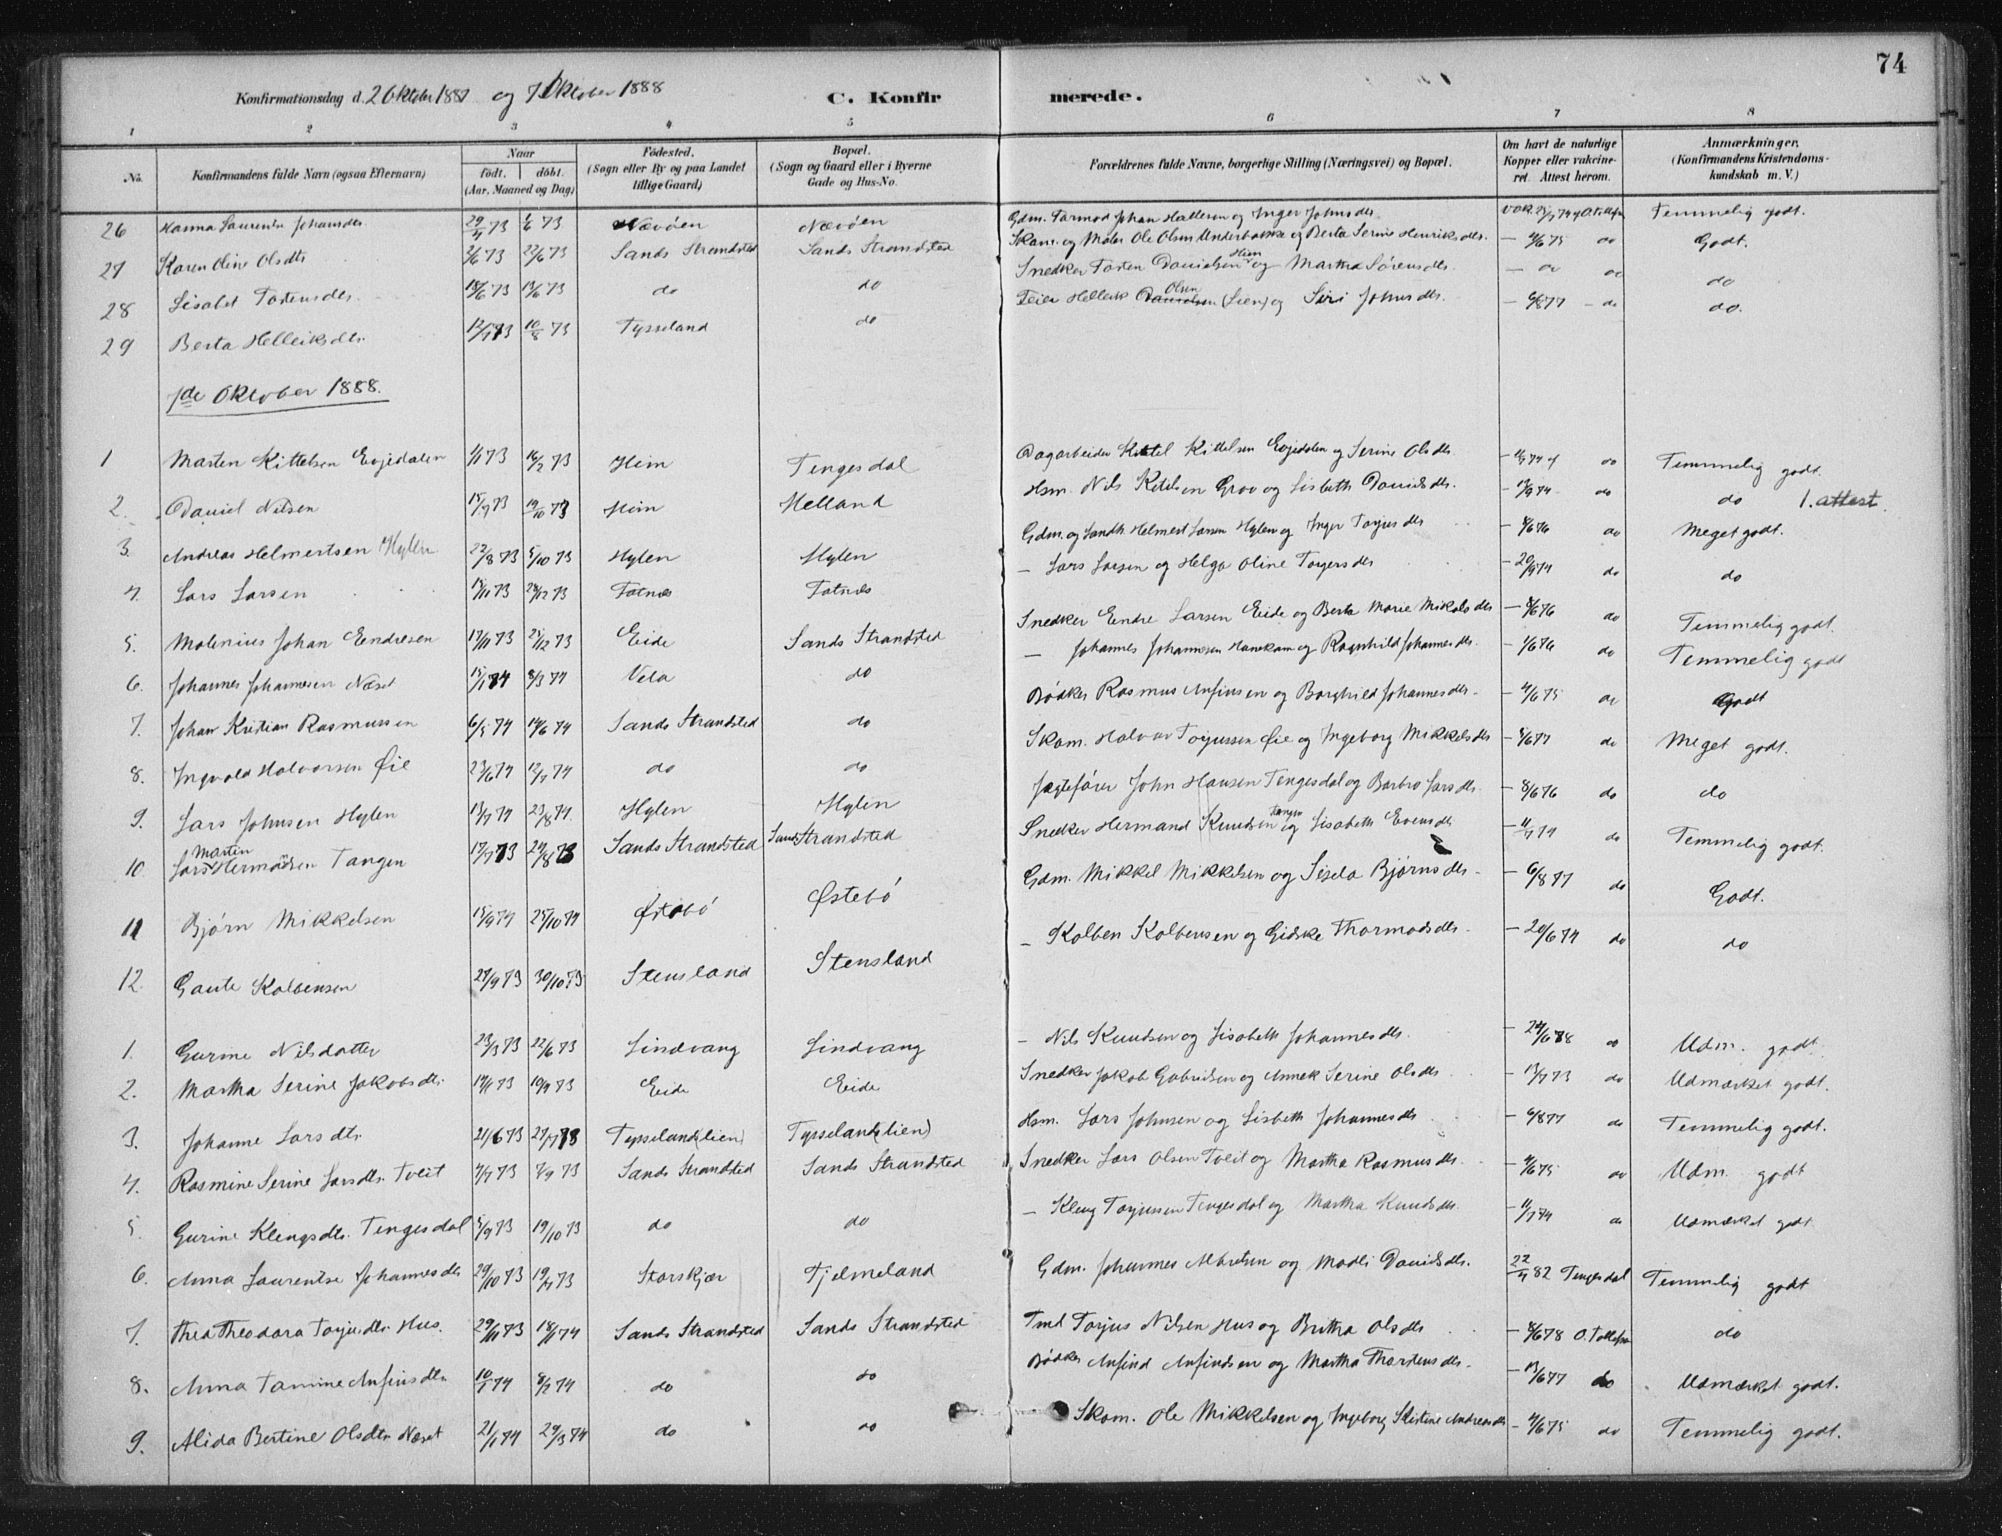 74
Konfirmationsdag d. 2 Oktober 1887 og 7 Oktober 1888 C. Konfir merede.
1 2 3 4 5 6 7 8
No. Konfirmandens fulde Navn (ogsaa Efternavn) Naar født. døbt. (Aar, Maaned og Dag) Fødested. (Sogn eller By og paa Landet tillige Gaard) Bopæl. (Sogn og Gaard eller i Byerne Gade og Hus-No. Forældrenes fulde Navne, borgerlige Stilling (Næringsvei) og Bopæl. Om havt de naturlige Kopper eller vakcineret. Attest herom. Anmærkninger, (Konfirmandens Kristendomskundskab m. V.)
26 Hanna Laurentse Johansdtr 29/4 73 1/6 73 Nævøen Nævøen Gdm. Tormod Johan Hallesen og Inger Johnsdtr Temmelig godt.
27 Karen Oline Olsdtr 2/6 73 22/6 73 Sands Strandsted Sands Strandsted Skom. og Maler Ole Olsen Underbakke og Berta Serine Henriksdtr. — 4/6 75 do Godt.
28 Lisabet Tostensdtr. 73 73 do do Snedker Tosten Danielsen Hiim og Martha Sørensdtr. — do do do
29 Berta Helleiksdtr. 12/7 73 10/8 73 Tysseland do Feier Helleik Olsen (Lien) og Siri Johnsdtr. — 6/8 77 — do do.
7de Oktober 1888.
1 Marten Kittelsen Evjedalen 1/1 73 16/2 73 Heim Tengesdal Dagarbeider Kittel Kittelsen Evjedalen og Serine Olsdtr — do Temmelig godt.
2. Daniel Nilsen 15/7 73 19/10 73 Heim Helland Hsm. Nils Kittelsen Grov og Lisbeth Danielsdtr. — do do 1. attest.
3. Andreas Helmertsen Hylen 22/8 73 5/10 73 Hylen Hylen Gdm. og Landh. Helmert Larsen Hylen og Inger Torjusdtr — 8/6 76 do Meget godt.
4. Lars Larsen 73 73 Fatnæs Fatnæs — Lars Larsen og Helga Oline Torgersdtr — 20/9 74 do do
5. Molenius Johan Eendresen 17/11 73 25/12 73 Eide Sands Strandsted Snedker Eendre Larsen Eide og Berta Marie Mikalsdtr — 8/6 76 do Temmelig godt.
6. Johannes Johannesen Næset 15/1 74 8/3 74 Vela do — Johannes Johannesen Hanekam og Ragnhild Johannesdtr. — 1/6 76 do Temmelig godt
7. Johan Kristian Rasmussen 6/5 74 14/6 74 Sands Strandsted do Bødker Rasmus Anfinsen og Borghild Johannesdtr. — 4/6 75 do Godt
8. Ingvald Halvorsen Øie 23/6 74 12/7 74 do do Skom. Halvor Torjussen Øie og Ingeborg Mikkelsdtr — 5/6 77 do Meget godt.
9. Lars Johnsen Hylen 13/7 74 23/8 74. Hylen Hylen Jægtefører John Hansen Tengesdal og Barbro Larsdtr. — 8/6 76 do do
10 Lars Marten Hermansen Tangen 17/7 73 24/8 73 Sands Strandsted Sands Strandsted Snedker Hermand Knudsen Tangen og Lisabeth Evensdtr — 11/7 74 do Temmelig godt.
11 Bjørn Mikkelsen 15/9 74 25/10 74 Østebø Østebø Gdm. Mikkel Mikkelsen og Sisela Bjørnsdtr. — 6/8 77 do Godt.
12. Gaute Kolbensen 27/9 73 30/10 73 Stensland Stensland — Kolben Kolbensen og Gidske Thormodsdtr. — 20/6 74 do do
1. Gurine Nilsdatter 23/3 73 22/6 73 Lindvang Lindvang — Nils Knudsen og Lisabeth Johannesdtr. — 24/6 78 do Udm. godt.
2. Martha Serine Jakobsdtr. 73 73 Eide Eide Snedker Jakob Gabrielsen og Annek Serine Olsdtr — 13/7 73 do Udmærket godt.
3. Johanne Larsdtr. 21/6 73 27/7 73 Tysseland (lien) Tysseland (lien) Hsm. Lars Johnsen og Lisbeth Johannesdtr — 6/8 77 do Temmelig godt.
4. Rasmine Serine Larsdtr. Tveit 7/7 73 7/9 73 Sands Strandsted Sands Strandsted Snedker Lars Olsen Tveit og Martha Rasmusdtr. — 4/6 75 do Udm. godt
5. Gurine Klengsdtr. Tengesdal 5/9 73 19/10 73 do do — Kleng Torjussen Tengesdal og Martha Knudsdtr. — 11/7 74 do Udmærket godt
6. Anna Laurentse Johannesdtr 29/10 73 73 Storskjær Fjelmeland Gdm. Johannes Albretsen og Madli Davidsdtr. 22/4 82 Tengesdal Temmelig godt
7. Thea Theodora Torjusdtr. Hus. 29/11 73 18/1 74 Sands Strandsted Sands Strandsted Tml Torjus Nilsen Hus og Britha Olsdtr — 8/6 78 O. Tollefsen do
8. Anna Tamine Anfinsdtr. 10/1 74 8/2 74 do do Bødker Anfind Anfindsen og Martha Thorstensdtr. — 13/6 77 do Udmærket godt.
9. Alida Bertine Olsdtr Næset 21/1 74 29/3 74 do do Skom. Ole Mikkelsen og Ingeborg Kistine Andreasdtr — 4/6 75 do Temmelig godt.